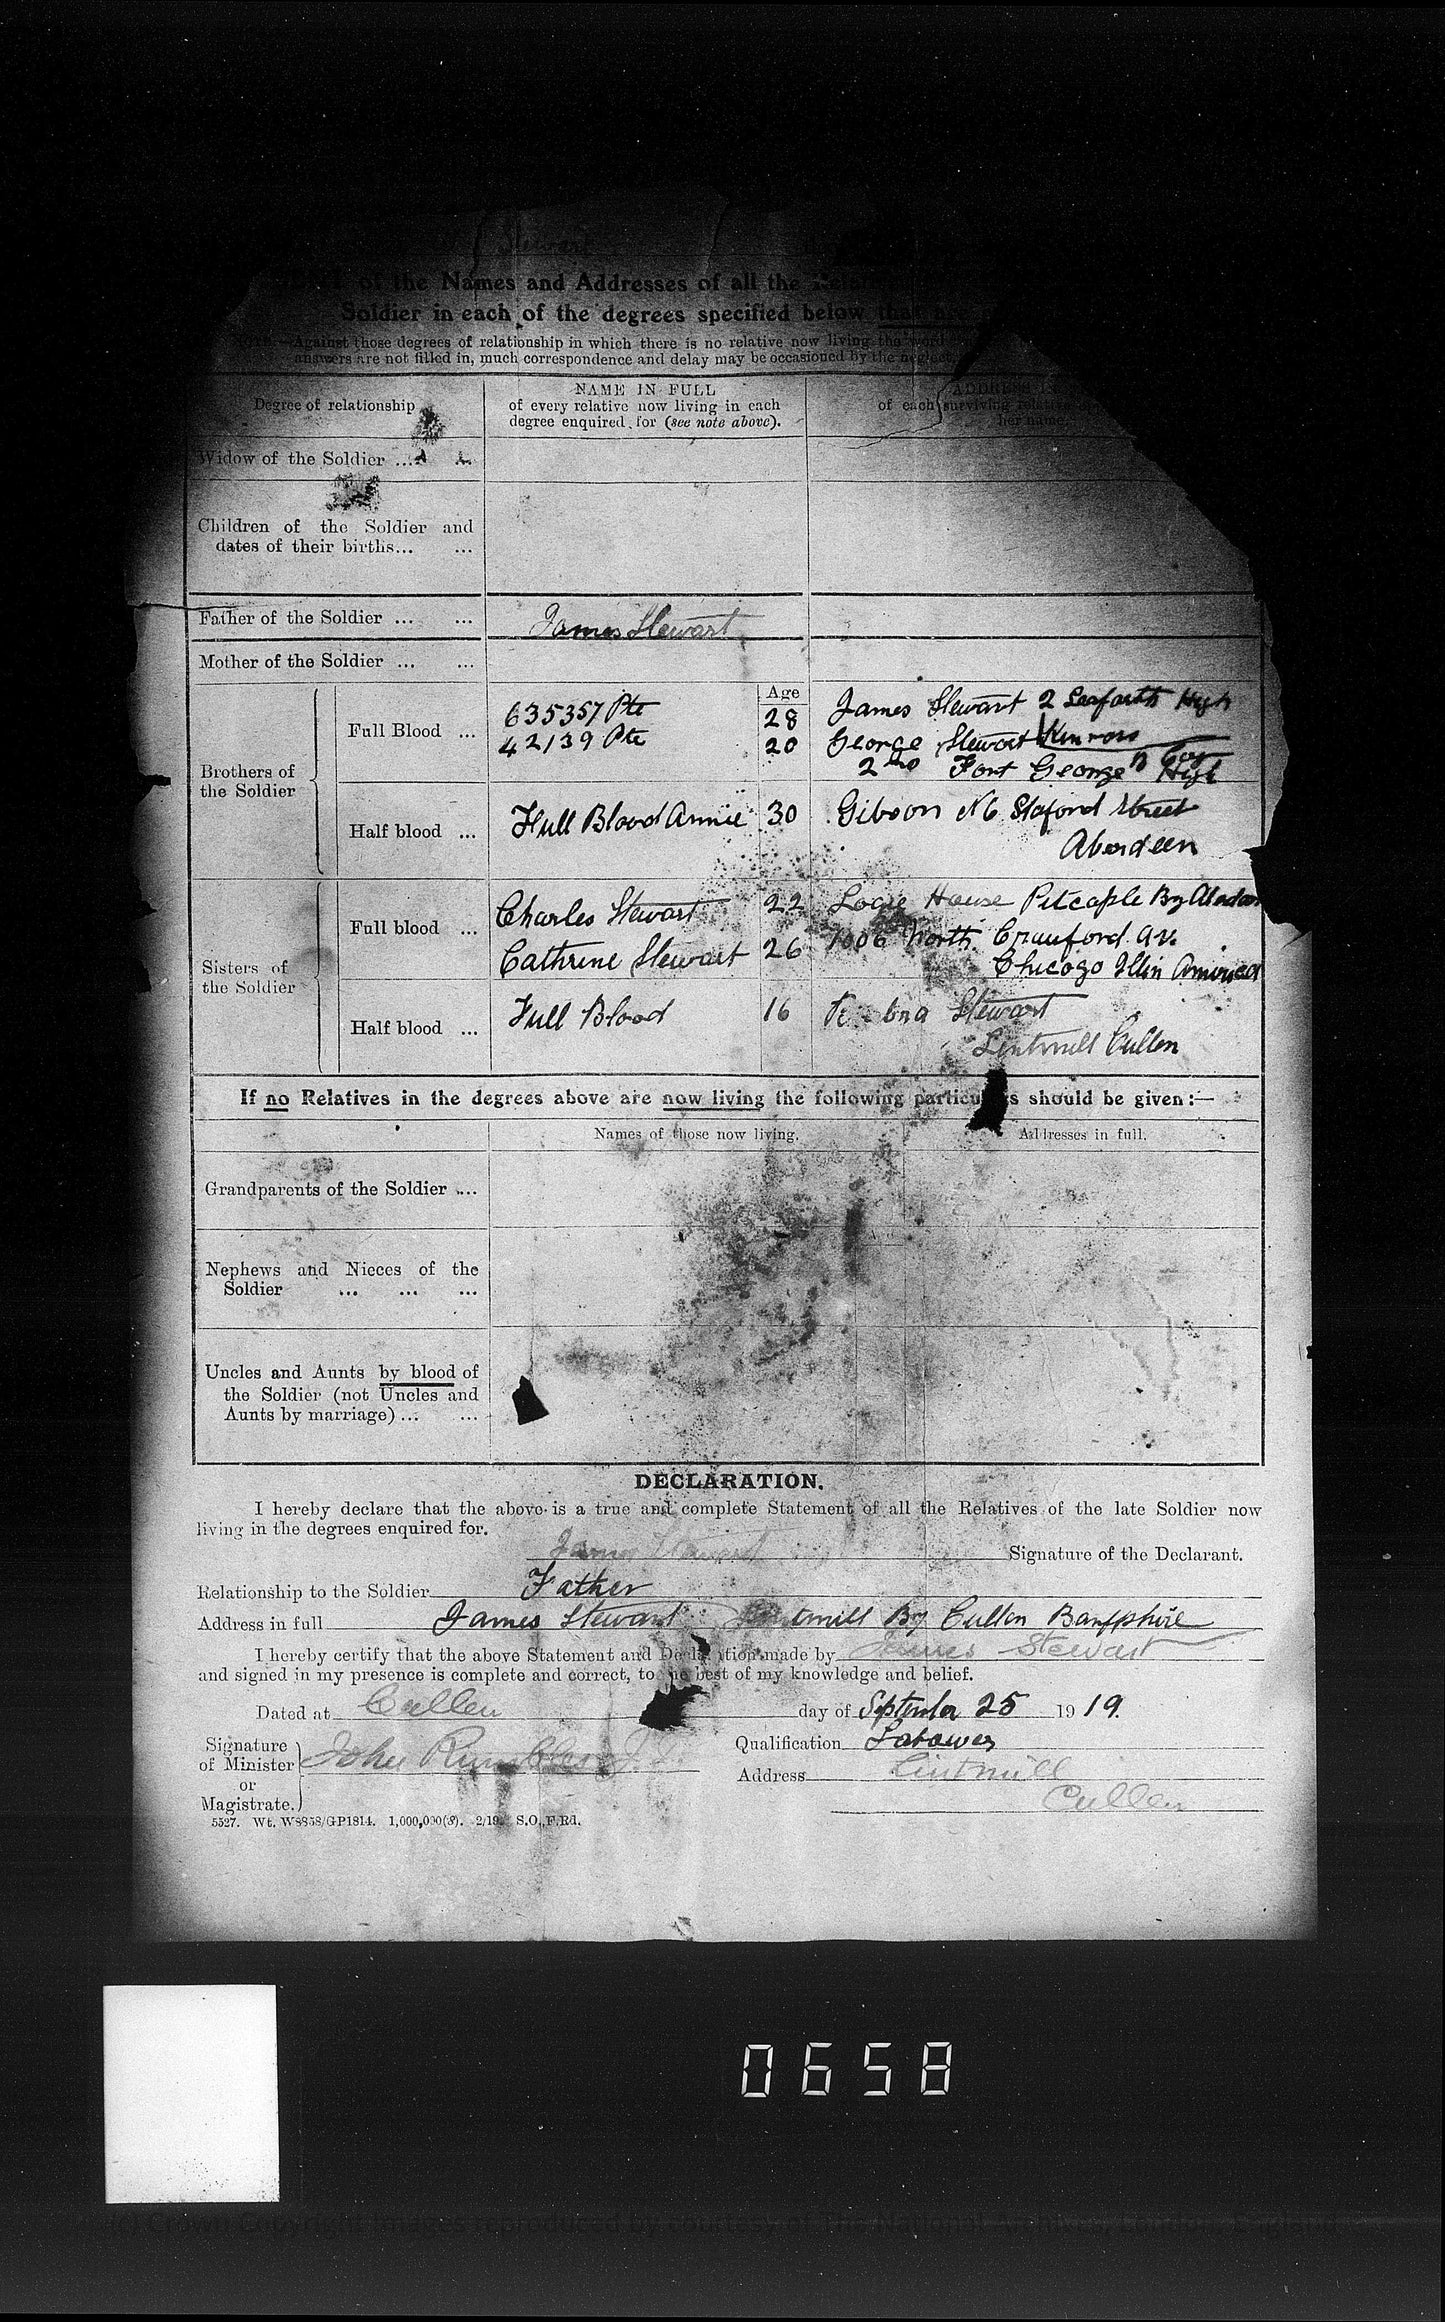 Stewart
of the Names and Addresses of all the
Soldier in each of the degrees specified below that are
NOTE.—Against those degrees of relationship in which there is no relative now living the word
answers are not filled in, much correspondence and delay may be occasioned by the neglect
Degree of relationship
NAME IN FULL
of every relative now living in each
degree enquired for (see note above).
ADDRESS
of each surviving relative
her name.
Widow of the Soldier ...
Children of the Soldier and
dates of their births... ...
Father of the Soldier ... ...
James Stewart
Mother of the Soldier ... ...
Brothers of
the Soldier
Full Blood ...
Age
635357 Pte 28 James Stewart 2 Seaforth High
42139 Pte 20 George Stewart Kinross
2nd Fort George B Coy
High
Half blood ...
Full Blood Annie 30 Gibson No 6 Staford Street
Aberdeen
Sisters of
the Soldier
Full blood ...
Charles Stewart 22 Logie House Pitcaple By
Cathrine Stewart 26 1006 North Crauford Av.
Chicago Illin America
Half blood ...
Full Blood 16 Stewart
Lintmill Cullen
If no Relatives in the degrees above are now living the following particulars should be given:—
Names of those now living.
Addresses in full.
Grandparents of the Soldier ...
Nephews and Nieces of the
Soldier ... ... ...
Uncles and Aunts by blood of
the Soldier (not Uncles and
Aunts by marriage) ... ...
DECLARATION.
I hereby declare that the above is a true and complete Statement of all the Relatives of the late Soldier now
living in the degrees enquired for.
James Stewart Signature of the Declarant.
Relationship to the Soldier Father
Address in full James Stewart Lintmill By Cullen Banffshire
I hereby certify that the above Statement and Declaration made by James Stewart
and signed in my presence is complete and correct, to the best of my knowledge and belief.
Dated at Cullen day of September 25 1919.
Signature
of Minister
or
Magistrate.
John Rumbles
Qualification Labourer
Address Lintmill
Cullen
5527. Wt. W8858/GP1814. 1,000,000(8). 2/19. S.O., F.Rd.
0658
(c) Crown Copyright Images reproduced by courtesy of The National Archives, London, England